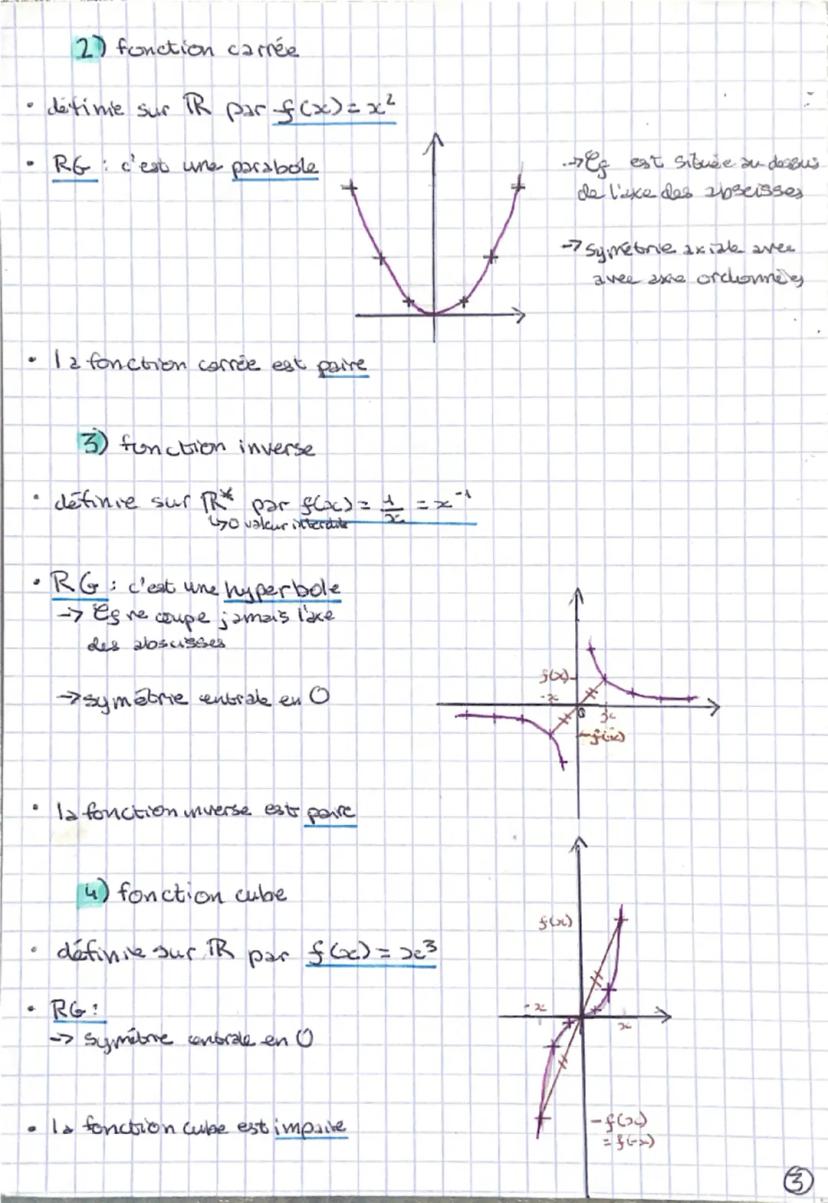 2) fonction carrée
• définie sur ℝ par f(x) = x²
• RG : c'est une parabole
→ Cf est située au dessus
de l'axe des abscisses
→ symétrie axiale avec
avec axe ordonnées
• la fonction carrée est paire
3) fonction inverse
• définie sur ℝ* par f(x) = 1/x = x⁻¹
↳ 0 valeur interdite
• RG : c'est une hyperbole
→ Cf ne coupe jamais l'axe
des abscisses
→ symétrie centrale en O
f(x)
-x
0
x
-f(x)
• la fonction inverse est paire
4) fonction cube
• définie sur ℝ par f(x) = x³
• RG :
→ symétrie centrale en O
• la fonction cube est impaire
f(x)
-x
x
-f(x)
= f(-x)
3